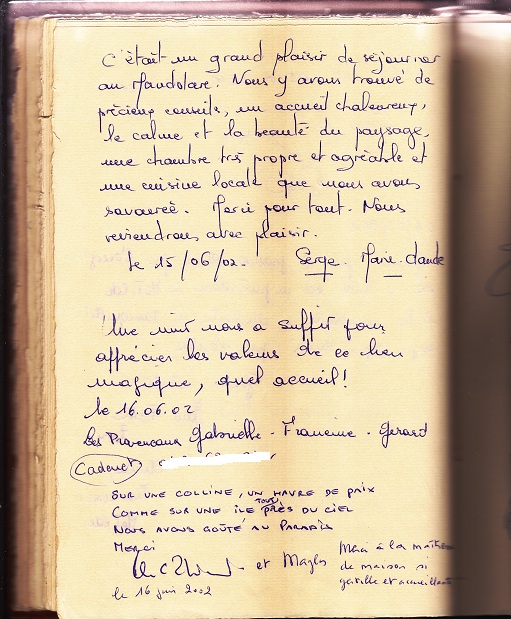 C'était un grand plaisir de séjourner
au Mandolare. Nous y avons trouvé de
précieux conseils, un accueil chaleureux,
le calme et la beauté du paysage,
une chambre très propre et agréable et
une cuisine locale que nous avons
savourée. Merci pour tout. Nous
reviendrons avec plaisir.
le 15/06/02. Serge. Marie-claude
Une nuit nous a suffit pour
apprécier les valeurs de ce lieu
magique, quel accueil!
le 16.06.02
Les Provencaux Gabrielle - Francine - Gerard
Cadenet
SUR UNE COLLINE, UN HAVRE DE PAIX
COMME SUR UNE ÎLE TOUT PRÈS DU CIEL
NOUS AVONS GOÛTÉ AU PARADIS
MERCI
et
Merci à la maîtresse
de maison si
gentille et accueillante
le 16 juin 2002